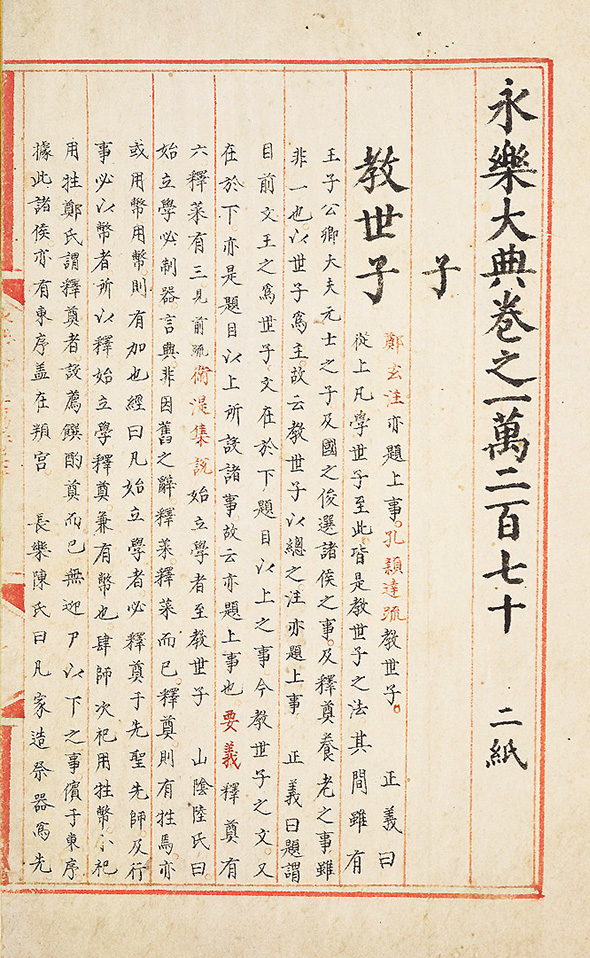 永樂大典卷之一萬二百七十 二紙
子
教世子
鄭玄注亦題上事。孔穎達疏教世子。 正義曰
從上凡學世子至此皆是教世子之法其間雖有
王子公卿大夫元士之子及國之俊選諸侯之事。及釋奠養老之事雖
非一也以世子為主。故云教世子以總之注亦題上事 正義曰題謂
目前文王之為世子文在於下題目以上之事今教世子之文。又
在於下亦是題目以上所說諸事故云亦題上事也。要義釋奠有
六釋菜有三見前疏衛湜集說始立學者至教世子 山陰陸氏曰
始立學必制器言典非因舊之辭釋菜釋菜而已釋奠則有牲焉。亦
或用幣用幣則有加也經曰凡始立學者必釋奠于先聖先師及行
事必以幣者所以釋始立學釋奠兼有幣也肆師次祀用牲幣小祀
用牲鄭氏謂釋奠者。設薦饌酌奠而已無迎尸以下之事儐于東序
據此諸侯亦有東序蓋在頖宮 長樂陳氏曰凡家造祭器為先